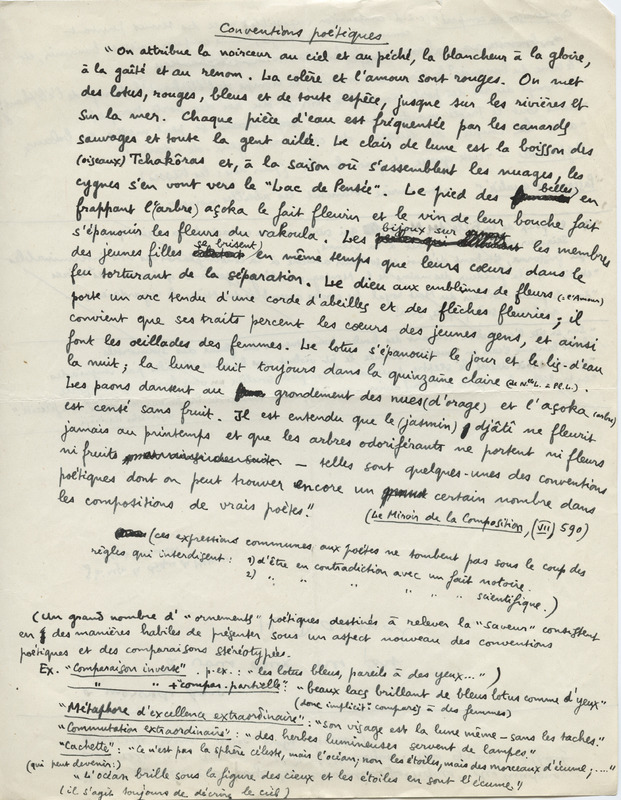 Conventions poétiques
"On attribue la noirceur au ciel et au péché, la blancheur à la gloire,
à la gaîté et au renom. La colère et l'amour sont rouges. On met
des lotus, rouges, bleus et de toute espèce, jusque sur les rivières et
sur la mer. Chaque pièce d'eau est fréquentée par les canards
sauvages et toute la gent ailée. Le clair de lune est la boisson des
(oiseaux) Tchakôras et, à la saison où s'assemblent les nuages, les
cygnes s'en vont vers le "Lac de Pensée". Le pied des belles) en
frappant l'(arbre) açoka le fait fleurir et le vin de leur bouche fait
s'épanouir les fleurs du vakoula. Les bijoux sur les membres
des jeunes filles se brisent) en même temps que leurs cœurs dans le
feu torturant de la séparation. Le dieu aux emblèmes de fleurs (= l'Amour)
porte un arc tendu d'une corde d'abeilles et des flèches fleuries ; il
convient que ses traits percent les cœurs des jeunes gens, et ainsi
font les œillades des femmes. Le lotus s'épanouit le jour et le lis-d'eau
la nuit ; la lune luit toujours dans la quinzaine claire (de Nlle L. à Pl. L.).
Les paons dansent au grondement des nues (d'orage) et l'açoka (arbre)
est censé sans fruit. Il est entendu que le (jasmin) djâtî ne fleurit
jamais au printemps et que les arbres odoriférants ne portent ni fleurs
ni fruits — telles sont quelques-unes des conventions
poétiques dont on peut trouver encore un certain nombre dans
les compositions de vrais poètes."
(Le Miroir de la Composition, (VII) 590)
(ces expressions communes aux poètes ne tombent pas sous le coup des
règles qui interdisent : 1) d'être en contradiction avec un fait notoire.
2) " " " " " " scientifique.)
(Un grand nombre d'"ornements" poétiques destinés à relever la "saveur" consistent
en des manières habiles de présenter sous un aspect nouveau des conventions
poétiques et des comparaisons stéréotypées.
Ex. "Comparaison inverse". p. ex. : "les lotus bleus, pareils à des yeux...")
" " + "compar. partielle" : "beaux lacs brillant de bleus lotus comme d'yeux"
(donc implicitt comparés à des femmes)
"Métaphore d'excellence extraordinaire" : "son visage est la lune même — sans les taches."
"Commutation extraordinaire" : "des herbes lumineuses servent de lampes."
"Cachette" : "Ce n'est pas la sphère céleste, mais l'océan ; non les étoiles, mais des morceaux d'écume ; ...."
(qui peut devenir :)
"L'océan brille sous la figure des cieux et les étoiles en sont l'écume."
(il s'agit toujours de décrire le ciel)